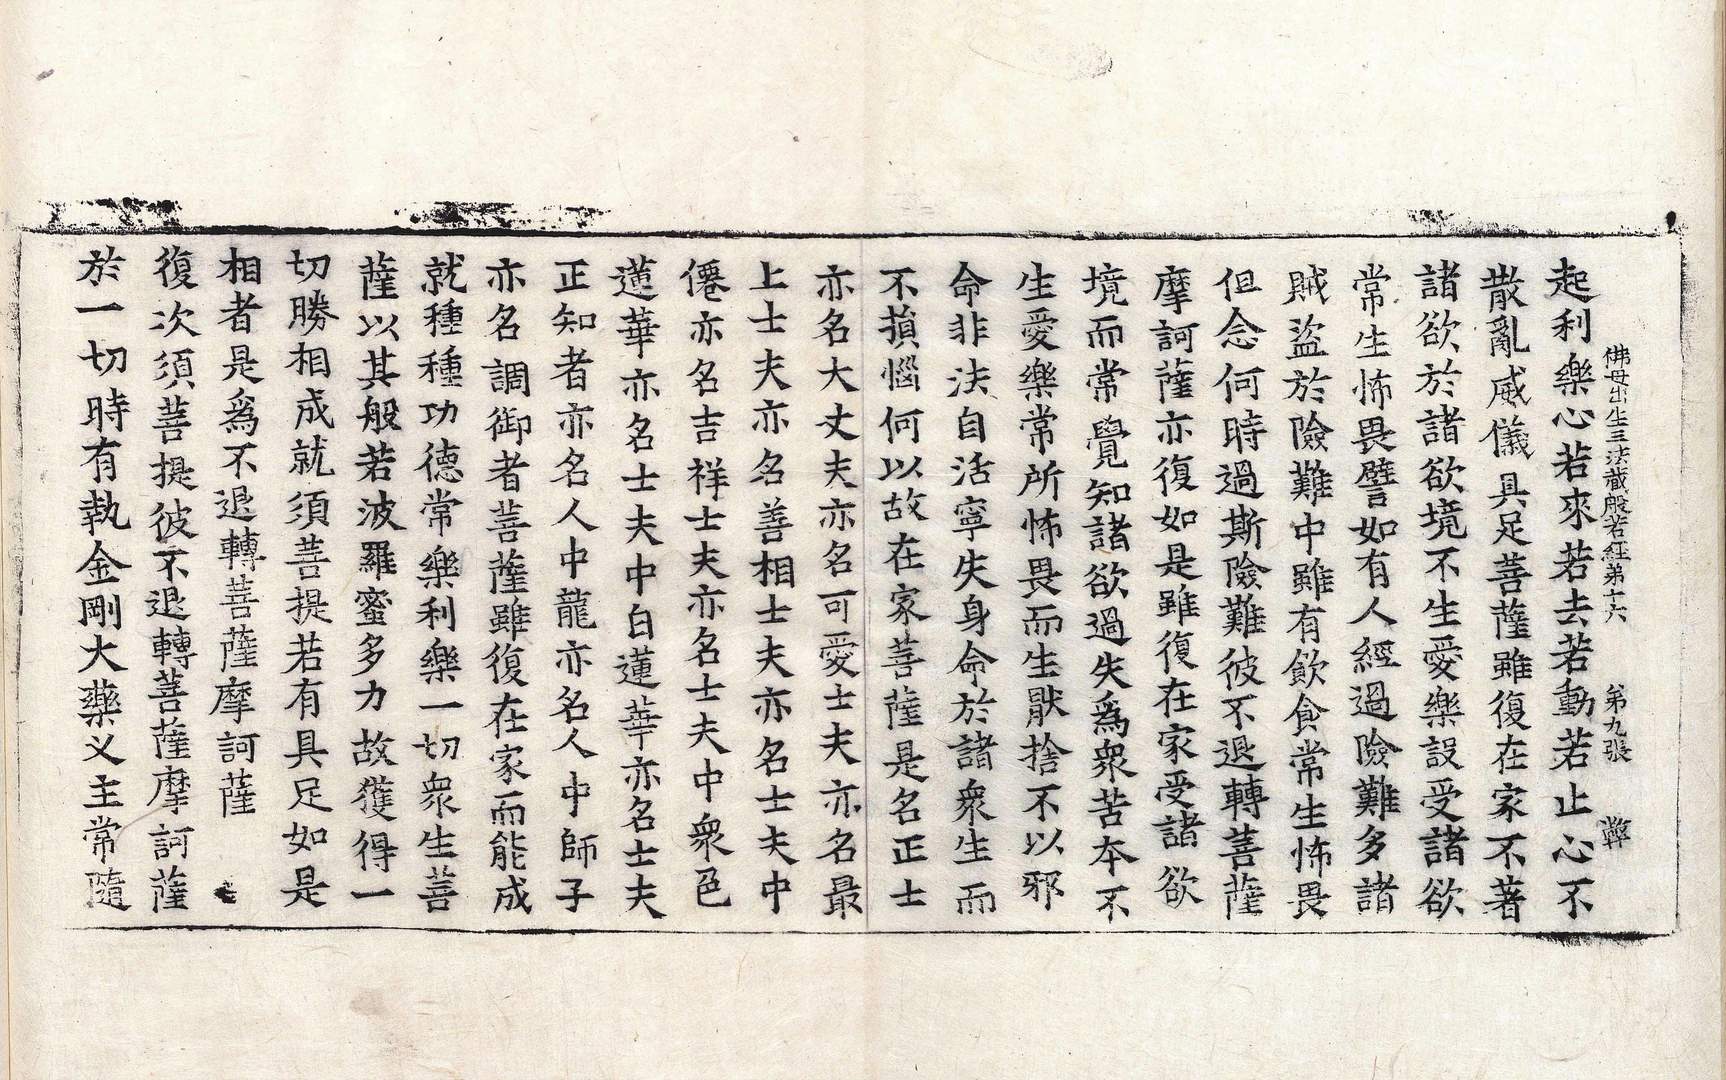 佛母出生三法藏般若經第十六 第九張 弊
起利樂心若來若去若動若止心不
散亂威儀具足菩薩雖復在家不著
諸欲於諸欲境不生愛樂設受諸欲
常生怖畏譬如有人經過險難多諸
賊盜於險難中雖有飲食常生怖畏
但念何時過斯險難彼不退轉菩薩
摩訶薩亦復如是雖復在家受諸欲
境而常覺知諸欲過失為衆苦本不
生愛樂常所怖畏而生猒捨不以邪
命非法自活寧失身命於諸衆生而
不損惱何以故在家菩薩是名正士
亦名大丈夫亦名可愛士夫亦名最
上士夫亦名善相士夫亦名士夫中
僊亦名吉祥士夫亦名士夫中衆色
蓮華亦名士夫中白蓮華亦名士夫
正知者亦名人中龍亦名人中師子
亦名調御者菩薩雖復在家而能成
就種種功德常樂利樂一切衆生菩
薩以其般若波羅蜜多力故獲得一
切勝相成就須菩提若有具足如是
相者是為不退轉菩薩摩訶薩
復次須菩提彼不退轉菩薩摩訶薩
於一切時有執金剛大藥义主常隨